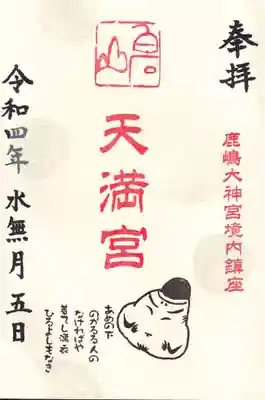 奉拝
鹿嶋大神宮境内鎮座
天満宮
あめの下
のがるる人の
なければや
着てし濡衣
ひるよしもなき
令和四年 水無月 五日